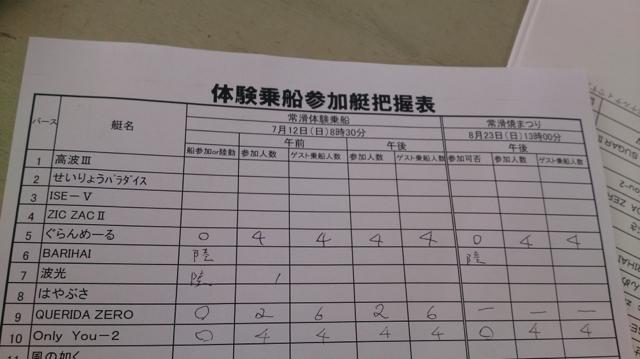 体験乗船参加艇把握表
バース 艇名 常滑体験乗船 常滑焼まつり
7月12日(日)8時30分 8月23日(日)13時00分
午前 午後 午後
船参加or陸動 参加人数 ゲスト乗船人数 参加人数 ゲスト乗船人数 参加可否 参加人数 ゲスト乗船人数
1 高波Ⅲ
2 せいりょうパラダイス
3 ISE-Ⅴ
4 ZIC ZACⅡ
5 ぐらんめーる 0 4 4 4 4 0 4 4
6 BARIHAI 陸 陸
7 波光 陸 1
8 はやぶさ
9 QUERIDA ZERO 0 2 6 2 6 ー ー ー
10 Only You-2 0 4 4 4 4 0 4 4
11 風の如く